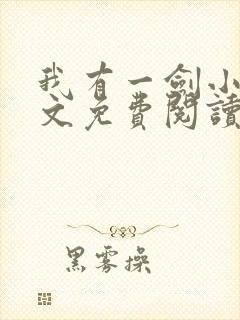 我有一劍小
文免費閱讀
黑雾操